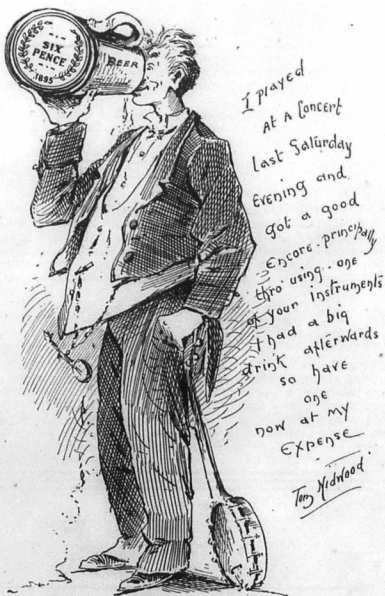 SIX
PENCE
1895
BEER
I prayed
at a Concert
last Saturday
Evening and
got a good
Encore. principally
thro using. one
of your Instruments
I had a big
drink afterwards
so have
one
now at my
Expense
Tom Midwood